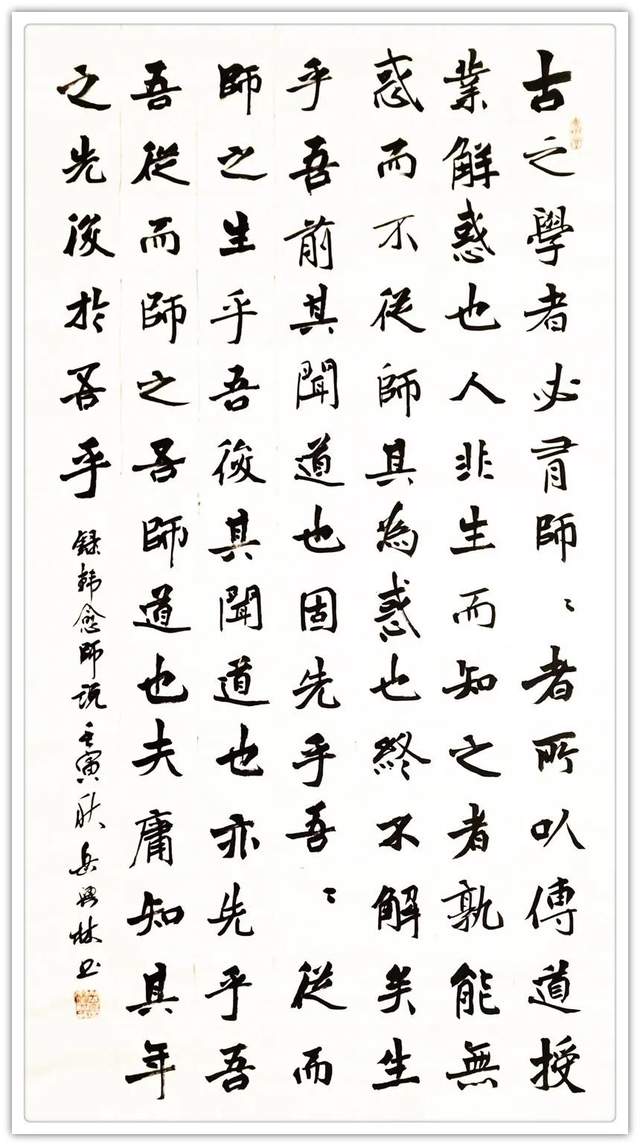 古之學者必有師〻者所以傳道授
業解惑也人非生而知之者孰能無
惑而不從師其為惑也終不解矣生
乎吾前其聞道也固先乎吾〻從而
師之生乎吾後其聞道也亦先乎吾
吾從而師之吾師道也夫庸知其年
之先後於吾乎
録韩愈師説壬寅秋岳興林书